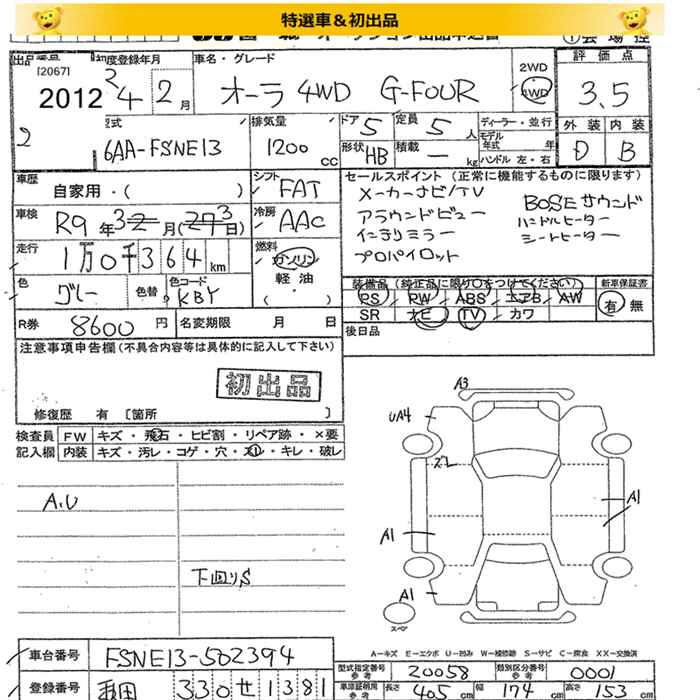 特選車＆初出品
出品番号
[2067]
2012
2
初度登録年月
4年 2月
車名・グレード
オーラ 4WD G-FOUR
2WD
4WD
評価点
3.5
型式
6AA-FSNE13
排気量
1200 cc
ドア 5
定員 5 人
形状 HB
積載 ー kg
ディーラー・並行
モデル年式 年
ハンドル 左・右
外装 内装
D B
車歴
自家用・( )
シフト FAT
セールスポイント (正常に機能するものに限ります)
メーカーナビ/TV
アラウンドビュー
インテリミラー
プロパイロット
BOSEサウンド
ハンドルヒーター
シートヒーター
車検 R9年3月(27日)
冷房 AAC
走行 1万0千364km
燃料 ガソリン
軽油
( ・ )
色 グレー
色替
色コード KBY
装備品 (純正品に限り○をつけてください)
PS PW ABS エアB AW
SR ナビ TV カワ
新車保証書
有 無
R券 8600円
名変期限 月 日
後日品
注意事項申告欄 (不具合内容等は具体的に記入して下さい)
初出品
修復歴 有 〔箇所 〕
検査員記入欄
FW キズ・飛石・ヒビ割・リペア跡・×要
内装 キズ・汚レ・コゲ・穴・スレ・キレ・破レ
A.U
下回りS
A3
UA4
ズレ
A1
A1
A1
スペア
A－キズ E－エクボ U－凹み W－補修跡 S－サビ C－腐食 XX－交換済
車台番号 FSNE13-502394
型式指定番号 参考 20058
類別区分番号 参考 0001
登録番号 330 せ 1381
車庫証明用 参考 長さ 405 cm 幅 174 cm 高さ 153 cm